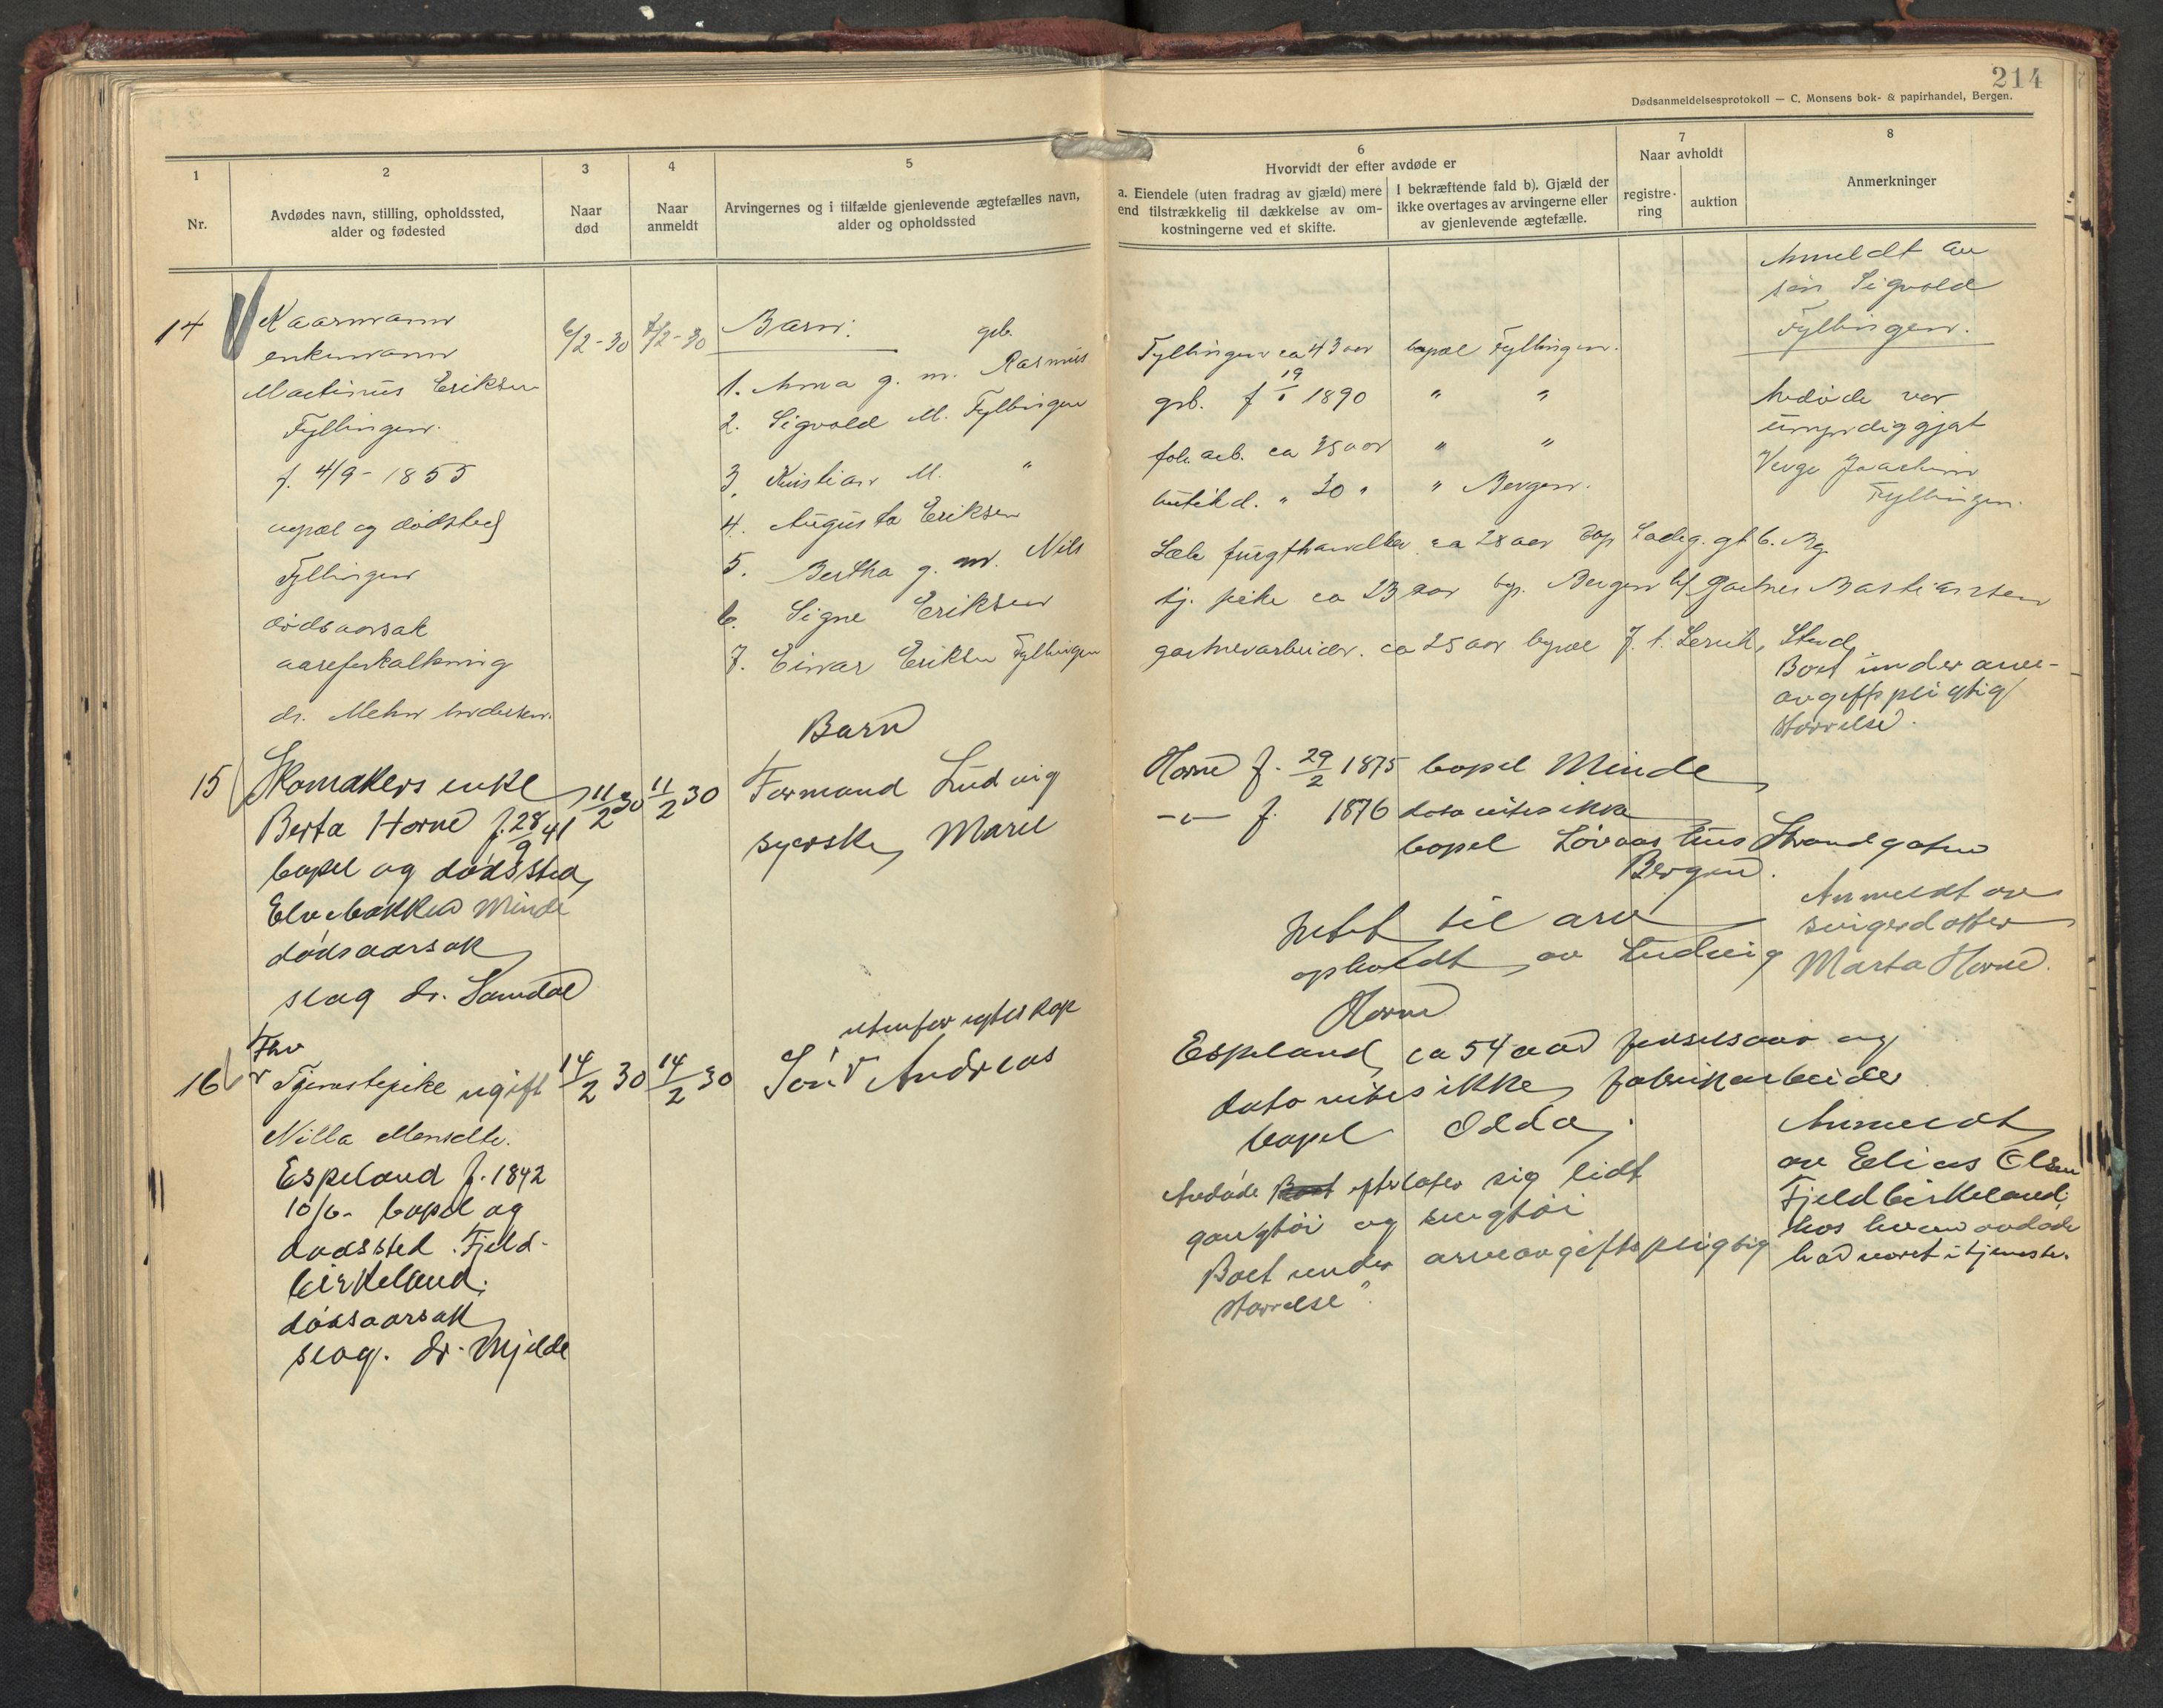 214
Dødsanmeldelsesprotokoll — C. Monsens bok- & papirhandel, Bergen.
1
Nr.
2
Avdødes navn, stilling, opholdssted,
alder og fødested
3
Naar
død
4
Naar
anmeldt
5
Arvingernes og i tilfælde gjenlevende ægtefælles navn,
alder og opholdssted
6
Hvorvidt der efter avdøde er
a. Eiendele (uten fradrag av gjæld) mere
end tilstrækkelig til dækkelse av om-
kostningerne ved et skifte.
I bekræftende fald b). Gjæld der
ikke overtages av arvingerne eller
av gjenlevende ægtefælle.
7
Naar avholdt
registre-
ring
auktion
8
Anmerkninger
14
Kaarmann
enkemann
Martinus Eriksen
Fyllingen.
f. 4/9 - 1855
bopæl og dødsted
Fyllingen
dødsaarsak
aareforkalkning
dr. Mehn Andersen.
6/2-30
7/2-30
Barn:
1. Anna g. m. grb. Rasmus
2. Sigvald M. Fyllingen
3. Kristian M. "
4. Augusta Eriksen
5. Bertha g. m. Nils
6. Signe Eriksen
7. Einar Eriksen Fyllingen
Fyllingen ca 43 aar bopæl Fyllingen.
grb. f 19/1 1890 " "
fab. arb. ca 35 aar " "
butikd. " 30 " " Bergen.
frugthandler ca 28 aar bop Ladeg. gt 6. Bg.
tj. pike ca 23 aar bop. Bergen h/ Gartner Bastiansen
gartnerarbeider. ca 25 aar bopæl
Anmeldt av
søn Sigvald
Fyllingen.
Avdøde var
umyndiggjort
Verge Joachim
Fyllingen.
Boet under arve-
avgiftspligtig
størrelse.
15
Skomakers enke
Berta Horne f. 28/9 41
bopel og dødssted
Elvebakken Minde
dødsaarsak
slag dr. Samdal
11/2 30
11/2 30
Barn
Formand Ludvig
syerske Marie
Horne f. 29/2 1875 bopel Minde
-"- f. 1876 dato vites ikke
bopel Løvaas hus Strandgaten
Bergen.
Intet til arv
opholdt av Ludvig
Horne
Anmeldt av
svigerdatter
Marta Horne.
16
Fhv
Tjenestepike ugift
Nilla Monsdtr.
Espeland f. 1842
10/6. bopel og
dødssted Fjeld-
birkeland.
dødsaarsak
slag. dr. Mjelde
14/2 30
14/2 30
utenfor egteskap
Søn Andreas
Espeland ca 54 aar fødselsaar og
dato vites ikke, fabrikarbeider
bopel Odda.
Avdøde Boet efterlater sig lidt
gangtøi og sengtøi
Boet under arveavgiftspligtig
størrelse".
Anmeldt
av Elias Olsen
Fjeldbirkeland,
hos hvem avdøde
had været i tjeneste.